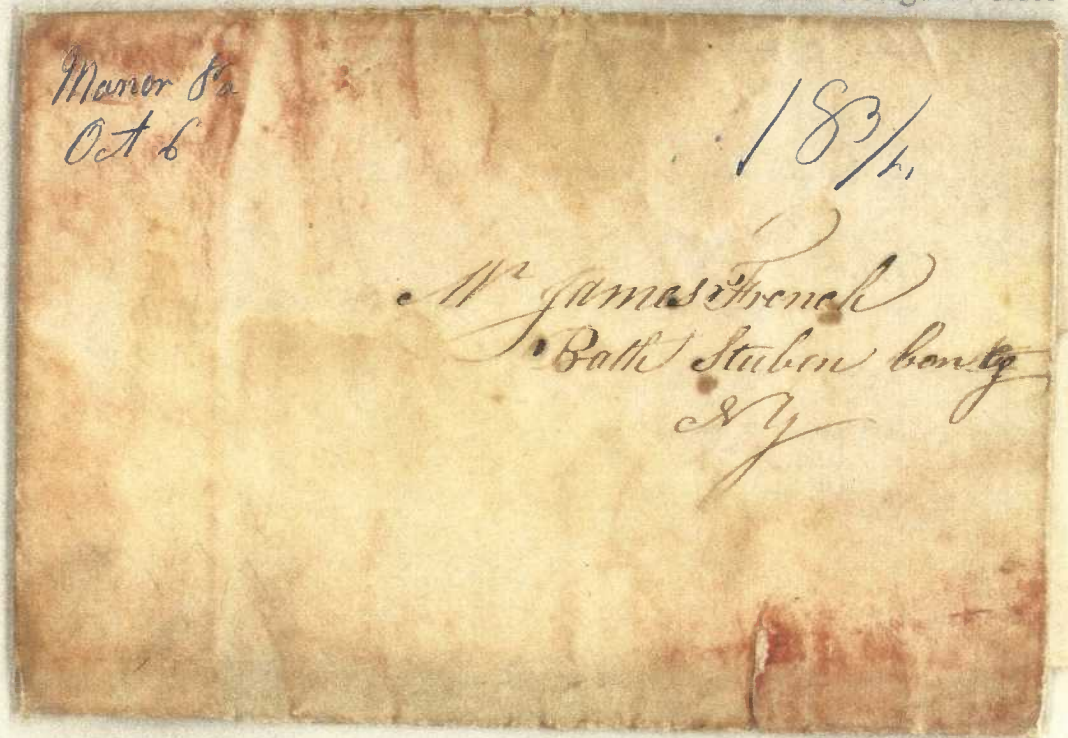 Manor Pa
Oct 6
18 3/4
Mr James French
Bath Stuben County
NY